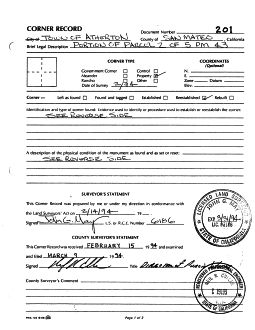 CORNER RECORD
Document Number 201
City of TOWN OF ATHERTON County of SAN MATEO California
Brief Legal Description PORTION OF PARCEL 2 OF 5 PM 43
CORNER TYPE
COORDINATES
(Optional)
Government Corner Control
Meander Property
Rancho Other
Date of Survey
N.
E.
Zone Datum
Elev.
Corner — Left as found Found and tagged Established Reestablished Rebuilt
Identification and type of corner found: Evidence used to identify or procedure used to establish or reestablish the corner:
SEE REVERSE SIDE
A description of the physical condition of the monument as found and as set or reset:
SEE REVERSE SIDE
SURVEYOR'S STATEMENT
This Corner Record was prepared by me or under my direction in conformance with
the Land Surveyors' Act on 3/14/94
Signed L.S. or R.C.E. Number
COUNTY SURVEYOR'S STATEMENT
This Corner Record was received FEBRUARY 15 1994 and examined
and filed MARCH 9 1994
Signed Title
County Surveyor's Comment
Page 1 of 2